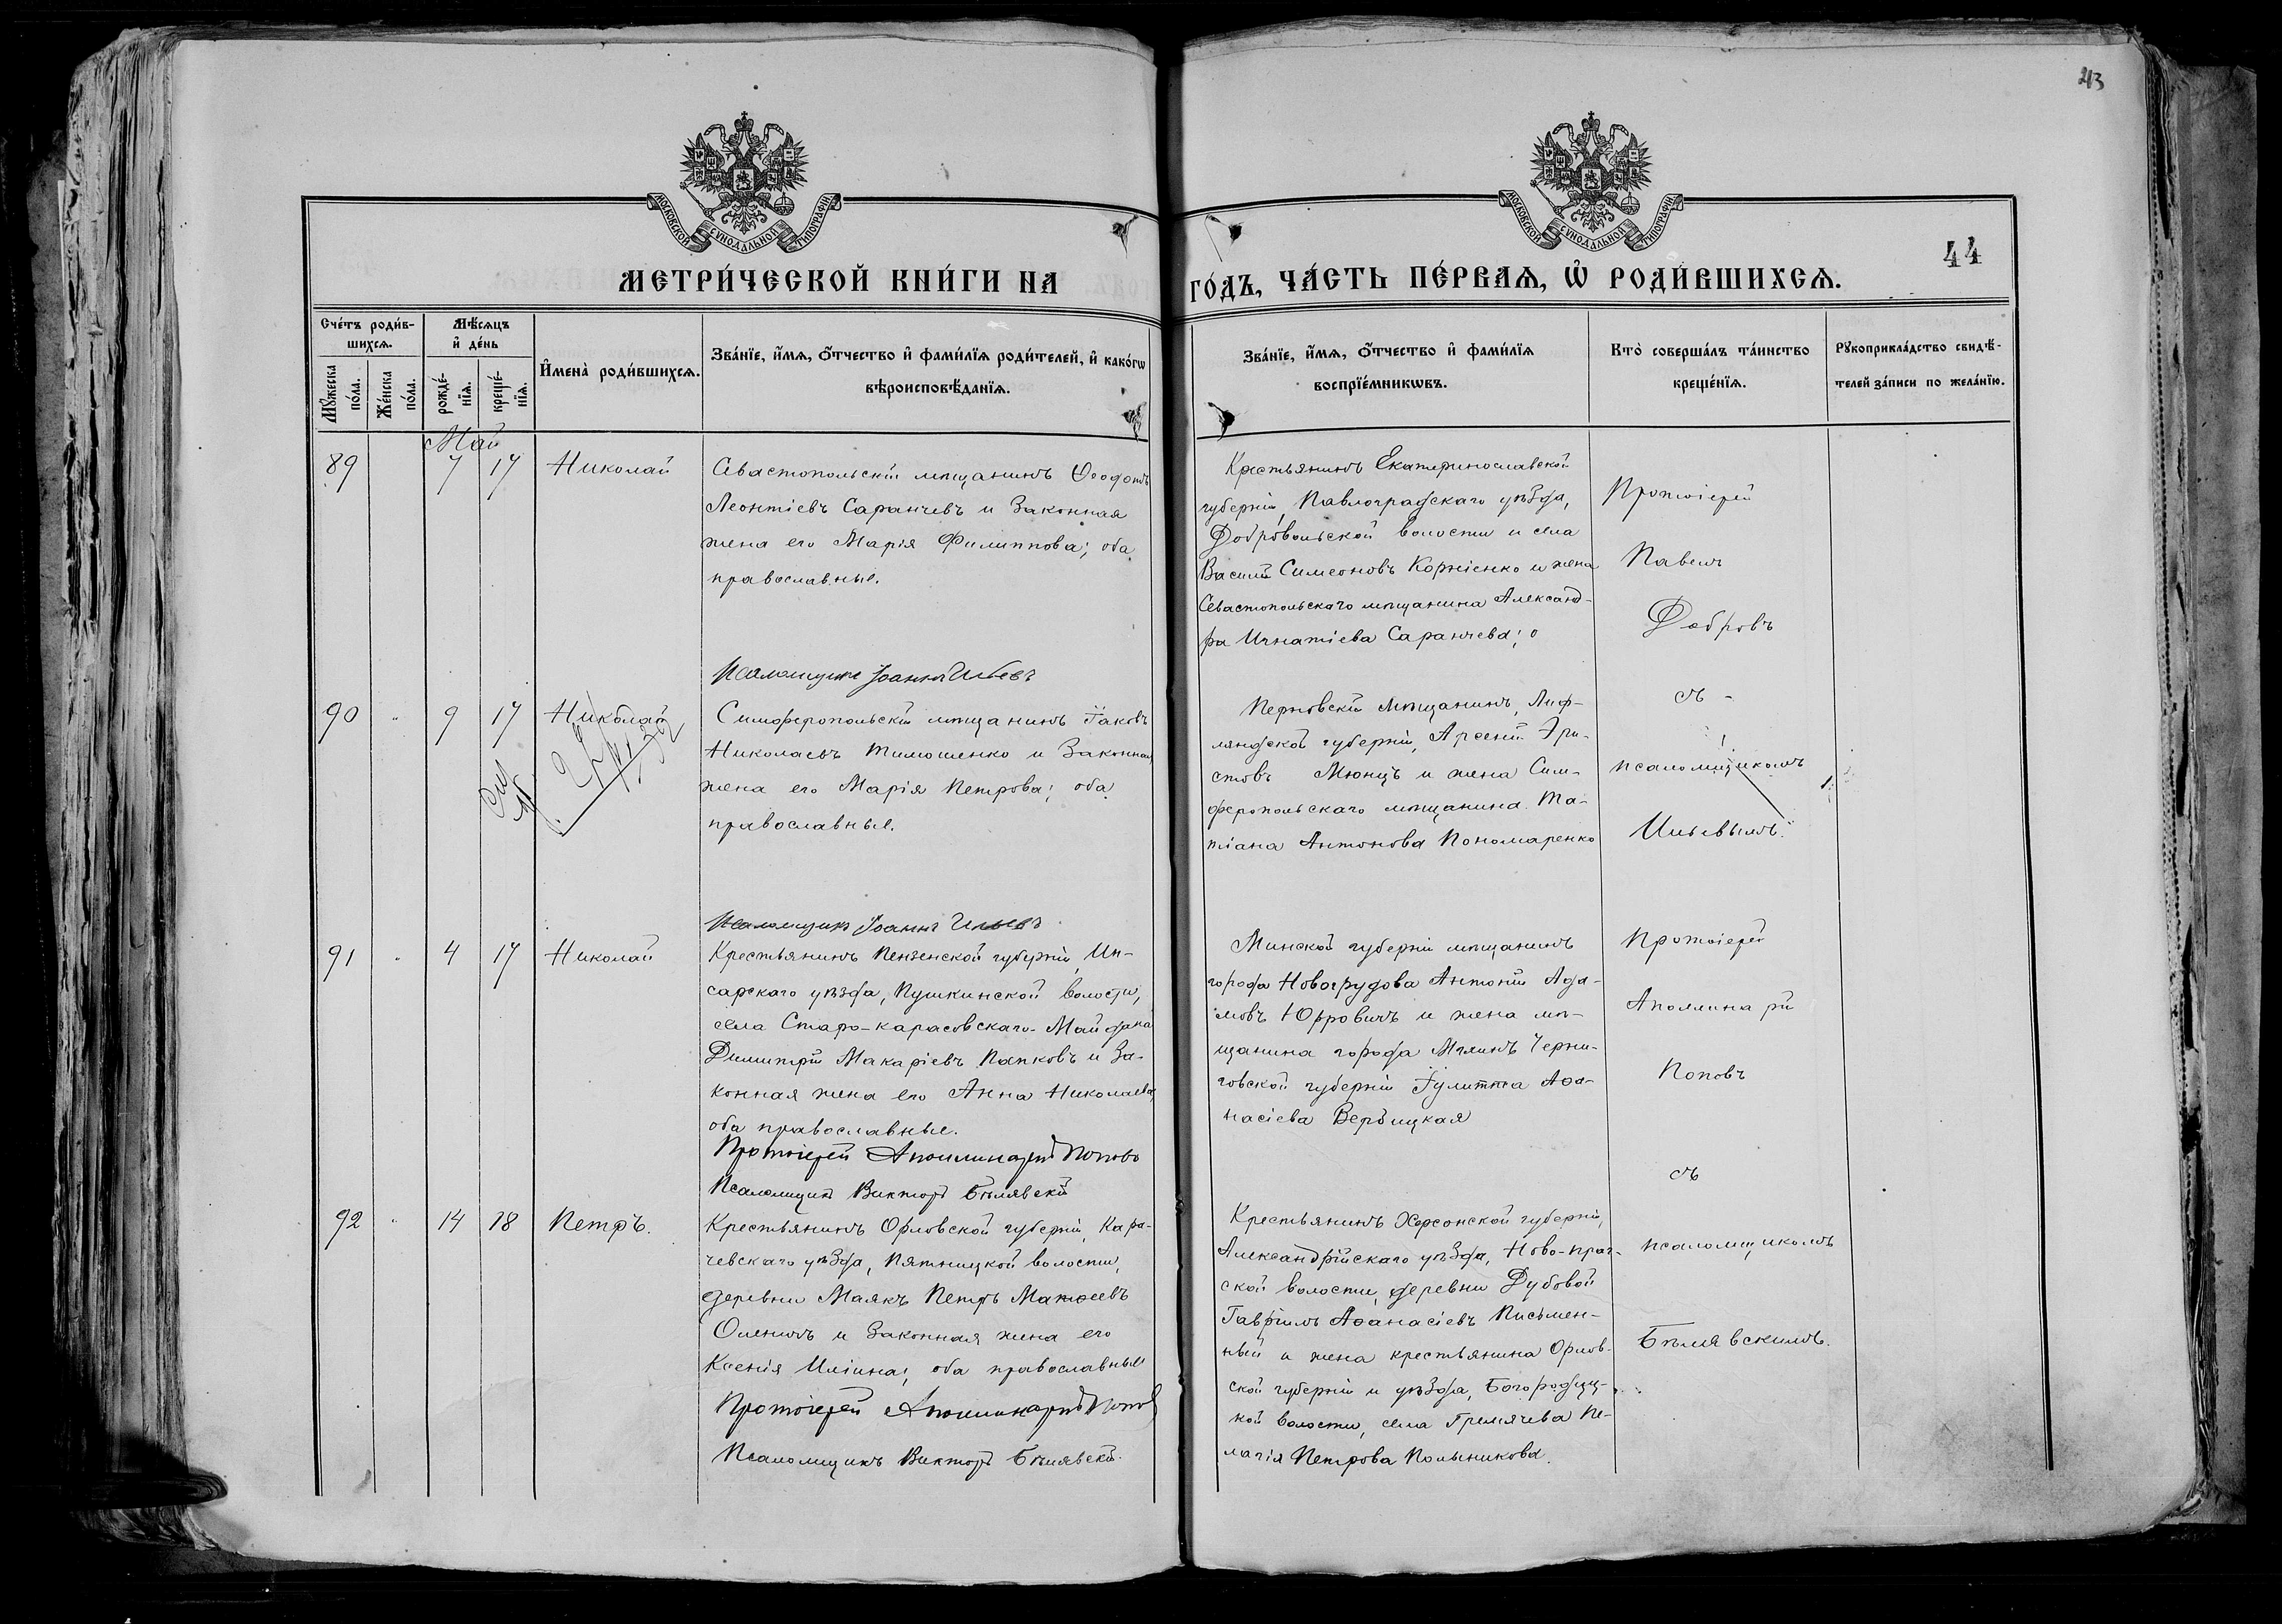 43
МОСКОВСКОЙ СУНОДАЛЬНОЙ ТИПОГРАФІИ
МОСКОВСКОЙ СУНОДАЛЬНОЙ ТИПОГРАФІИ
44
МЕТРИ́ЧЕСКОЙ КНИ́ГИ НА
ГО́ДЪ, ЧА́СТЬ ПЕ́РВАѦ, Ѿ РОДИ́ВШИХСѦ.
Сче́тъ роди́в-
шихсѧ.
Мѣ́сѧцъ
и҆ де́нь
Му́жеска
по́ла.
Же́нска
по́ла.
рожде́-
нїѧ.
креще́-
нїѧ.
И҆мена̀ роди́вшихсѧ.
Зва́нїе, и҆́мѧ, ѻ҆́тчество и҆ фами́лїѧ роди́телей, и҆ како́гѡ
вѣроисповѣ́данїѧ.
Зва́нїе, и҆́мѧ, ѻ҆́тчество и҆ фами́лїѧ
воспрїе́мникѡвъ.
Кто̀ соверша́лъ та́инство
креще́нїѧ.
Рꙋкоприкла́дство свидѣ́-
телей за́писи по жела́нїю.
Май
89 7 17 Николай
Севастопольскій мѣщанинъ Ѳеодотъ
Леонтіевъ Саранчевъ и законная
жена его Марія Филиппова; оба
православные.
Псаломщикъ Іоаннъ Ильевъ
Крестьянинъ Екатеринославской
губерніи, Павлоградскаго уѣзда,
Добровольской волости и села
Василій Симеоновъ Корніенко и жена
Севастопольскаго мѣщанина Александ-
ра Игнатіева Саранчева;
Протоіерей
Павелъ
Добровъ
съ
псаломщикомъ
Ильевымъ.
90 " 9 17 Николай
Симферопольскій мѣщанинъ Іаковъ
Николаевъ Тимошенко и законная
жена его Марія Петрова; оба
православные.
Псаломщикъ Іоаннъ Ильевъ
Перновскій мѣщанинъ, Лиф-
ляндской губерніи, Арсеній Эрн-
стовъ Мюнцъ и жена Сим-
феропольскаго мѣщанина Та-
тіана Антонова Пономаренко
91 " 4 17 Николай
Крестьянинъ Пензенской губерніи, Ин-
сарскаго уѣзда, Пушкинской волости,
села Старо-карасовскаго-Майдана
Димитрій Макаріевъ Папковъ и за-
конная жена его Анна Николаева,
оба православные.
Протоіерей Аполлинарій Поповъ
Псаломщикъ Викторъ Бѣлявскій
Минской губерніи мѣщанинъ
города Новогрудова Антоній Ада-
мовъ Юрровичъ и жена мѣ-
щанина города Мглинъ Черни-
говской губерніи Іулитта Аѳа-
насіева Вербицкая
Протоіерей
Аполлинарій
Поповъ
съ
псаломщикомъ
Бѣлявскимъ.
92 " 14 18 Петръ.
Крестьянинъ Орловской губерніи, Кара-
чевскаго уѣзда, Пятницкой волости,
деревни Маякъ Петръ Матѳеевъ
и законная жена его
Ксенія Иліина; оба православные
Протоіерей Аполлинарій Поповъ
Псаломщикъ Викторъ Бѣлявскій.
Крестьянинъ Херсонской губерніи,
Александрійскаго уѣзда, Ново-праг-
ской волости, деревни Дубовой
Гавріилъ Аѳанасіевъ Письмен-
ный и жена крестьянина Орлов-
ской губерніи и уѣзда, Богородиц-
кой волости, села Гремячева Пе-
лагія Петрова Полыникова.